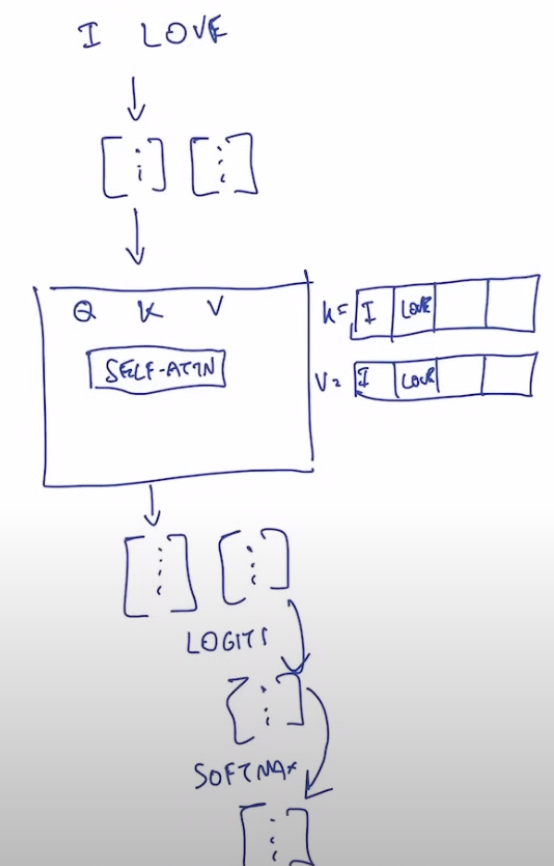 I LOVE
Q K V
SELF-ATTN
K= I LOVE
V= I LOVE
LOGITS
SOFTMAX